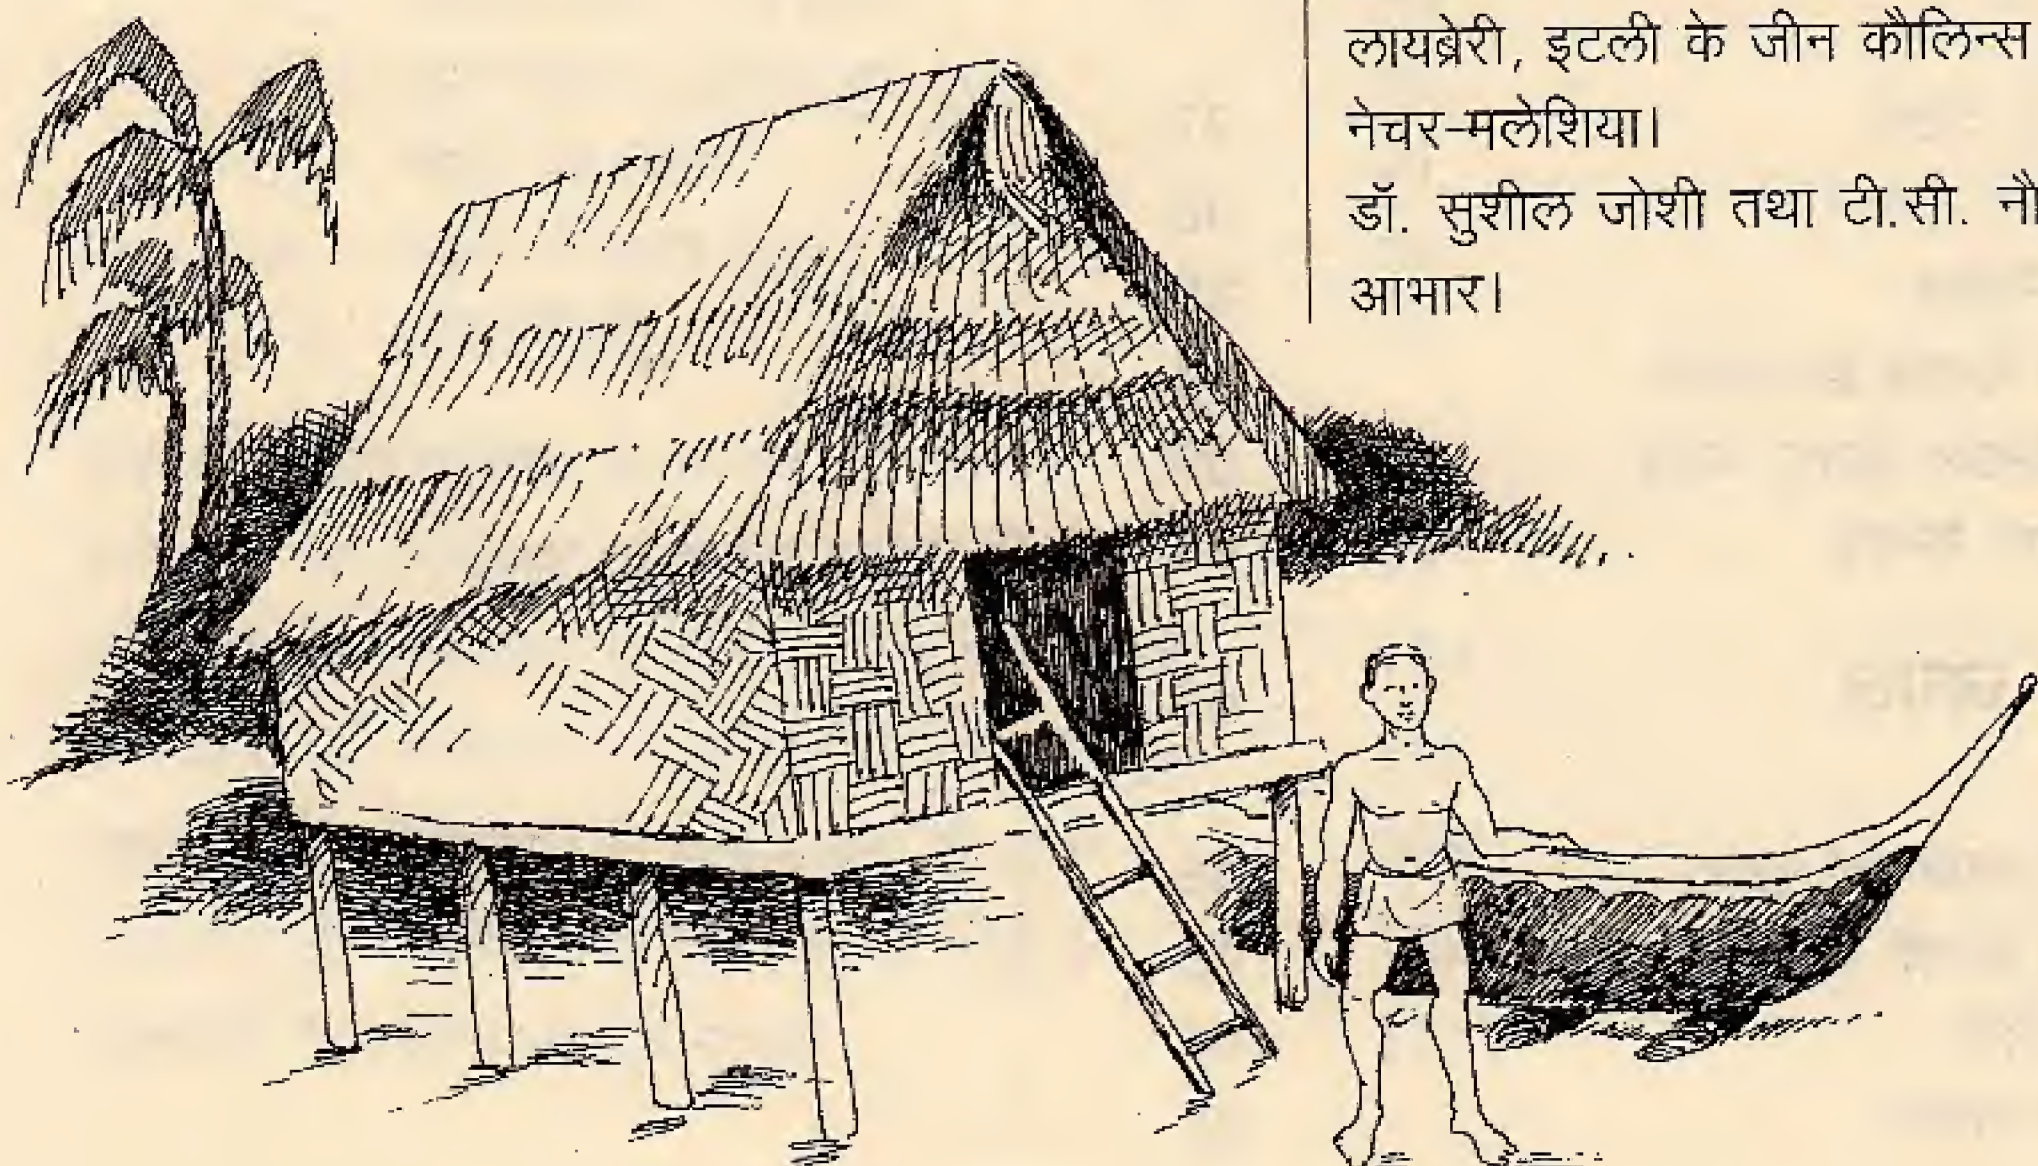 लायब्रेरी, इटली के जीन कौलिन्स
नेचर-मलेशिया।
डॉ. सुशील जोशी तथा टी.सी.
आभार।